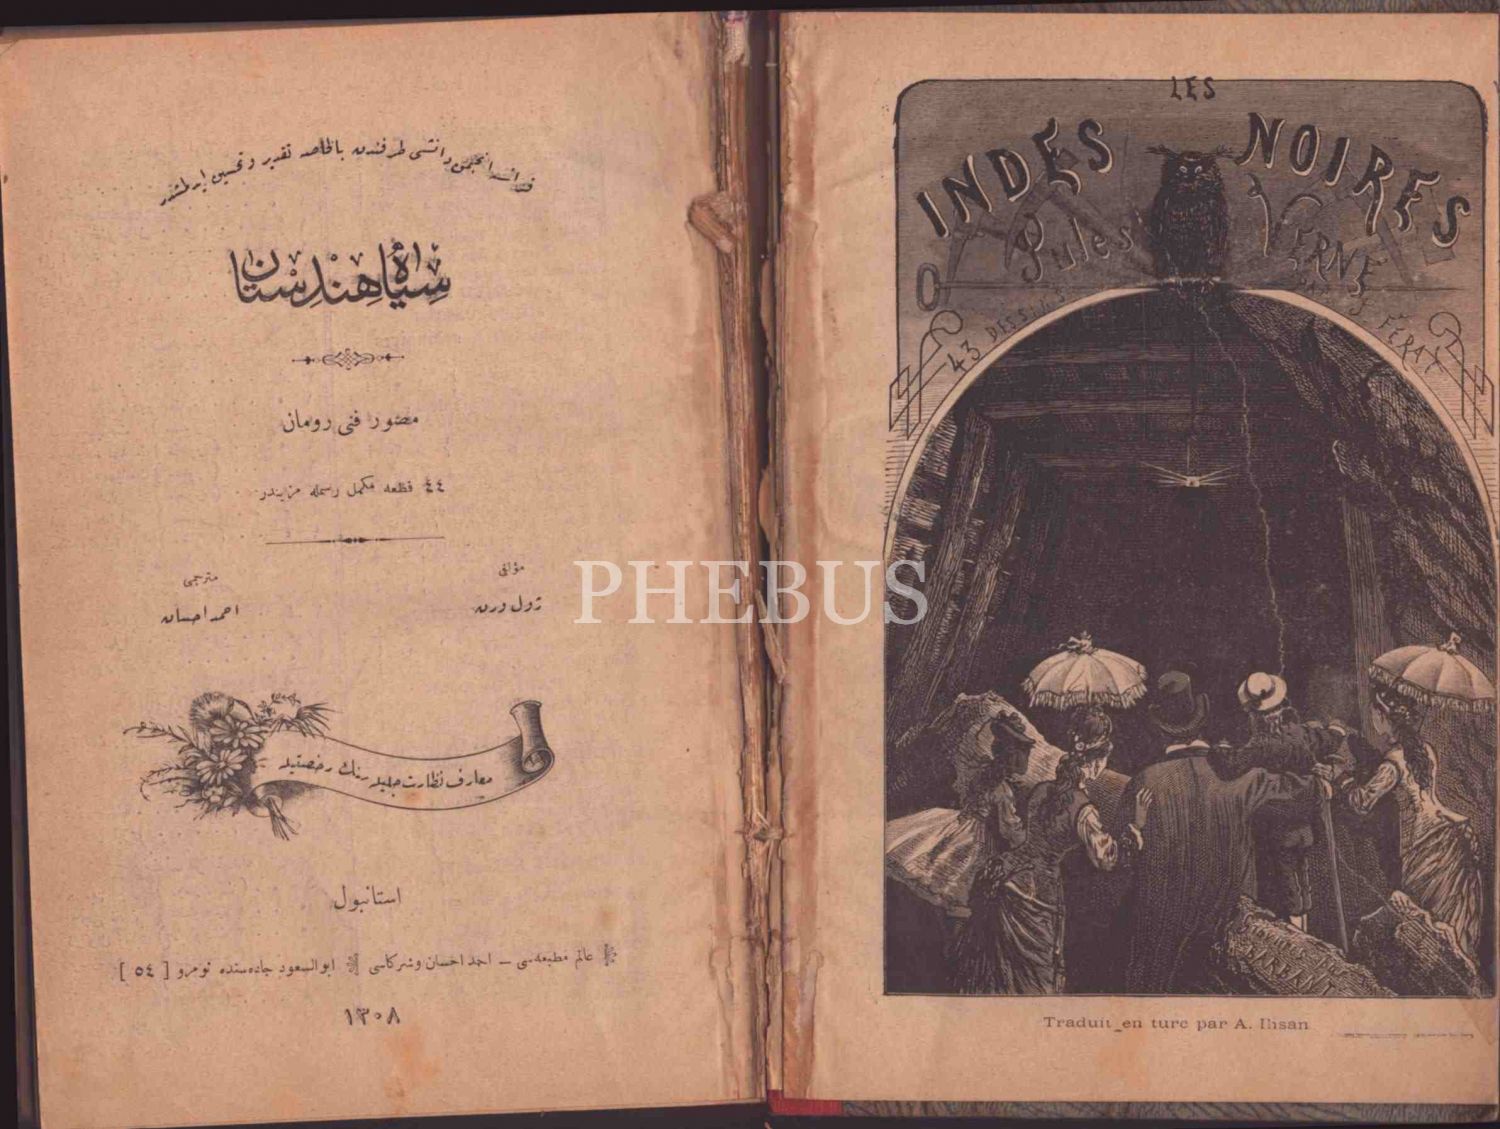 فرانسه انجمن دانشی طرفندن بالخاصه تقدیر و تحسین ایدلمشدر
سیاه هندستان
مصور فنی رومان
٤٤ قطعه مکمل رسمله مزیندر
مؤلفی
ژول ورن
مترجمی
احمد احسان
معارف نظارت جلیله سنك رخصتیله
استانبول
عالم مطبعه‌سی – احمد احسان وشرکاسی ابوالسعود جاده‌سنده نومرو [ ٥٤ ]
١٣٠٨
LES
INDES NOIRES
Jules VERNE
43 DESSINS
FÉRAT
BARBANT
Traduit en turc par A. Ihsan
PHEBUS